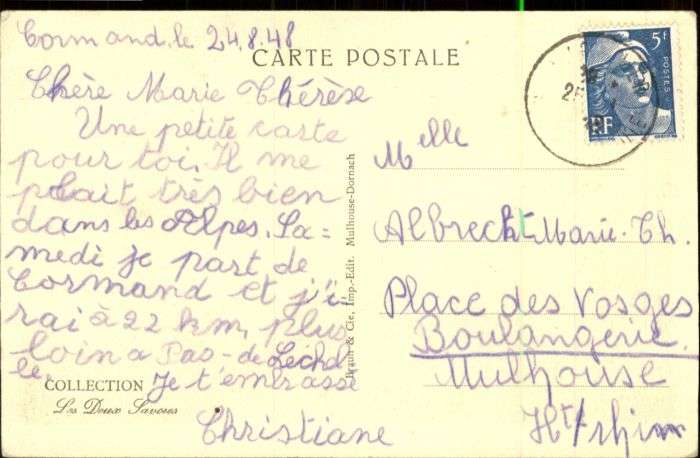 Cormand. le 24.8.48
CARTE POSTALE
Chère Marie Thérèse
Une petite carte
pour toi. Il me
plait très bien
dans les Alpes. Sa=
medi je part de
Cormand et j'i
rai à 22 km, plus
loin a Pas-de-l'échel
le. Je t'embrasse
Christiane
COLLECTION
Les Deux Savoies
Braun & Cie, Imp.-Edit. Mulhouse-Dornach
5f
POSTES
RF
25
Melle
Albrecht Marie-Th.
Place des Vosges
Boulangerie.
Mulhouse
Ht/rhin